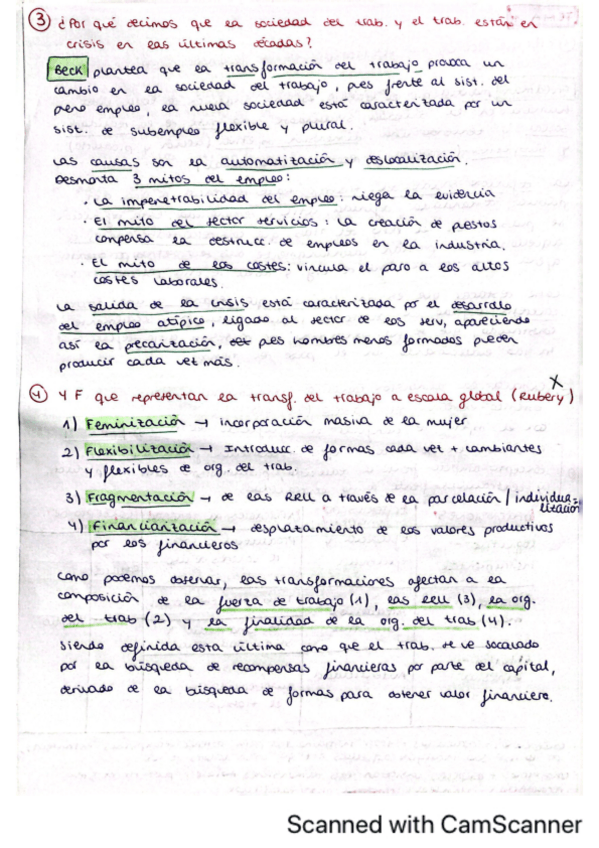 ③ ¿Por qué decimos que la sociedad del trab. y el trab. están en
crisis en las últimas décadas?
Beck plantea que la transformación del trabajo provoca un
cambio en la sociedad del trabajo, pues frente al sist. del
pleno empleo, la nueva sociedad está caracterizada por un
sist. de subempleo flexible y plural.
Las causas son la automatización y deslocalización.
Desmonta 3 mitos del empleo:
· La impenetrabilidad del empleo: niega la evidencia
· El mito del sector servicios: la creación de puestos
compensa la destrucc. de empleos en la industria.
· El mito de los costes: vincula el paro a los altos
costes laborales.
La salida de la crisis está caracterizada por el desarrollo
del empleo atípico, ligado al sector de los serv, apareciendo
así la precarización, pues hombres menos formados pueden
producir cada vez más.
④ 4 F que representan la transf. del trabajo a escala global (Rubery)
X
1) Feminización → incorporación masiva de la mujer
2) Flexibilización → Introducc. de formas cada vez + cambiantes
y flexibles de org. del trab.
3) Fragmentación → de las RRLL a través de la parcelación / individua-
lización
4) Financiarización → desplazamiento de los valores productivos
por los financieros
Como podemos observar, las transformaciones afectan a la
composición de la fuerza de trabajo (1), las RRLL (3), la org.
del trab (2) y la finalidad de la org. del trab (4).
Siendo definida esta última como que el trab. se ve socavado
por la búsqueda de recompensas financieras por parte del capital,
derivado de la búsqueda de formas para obtener valor financiero.
Scanned with CamScanner